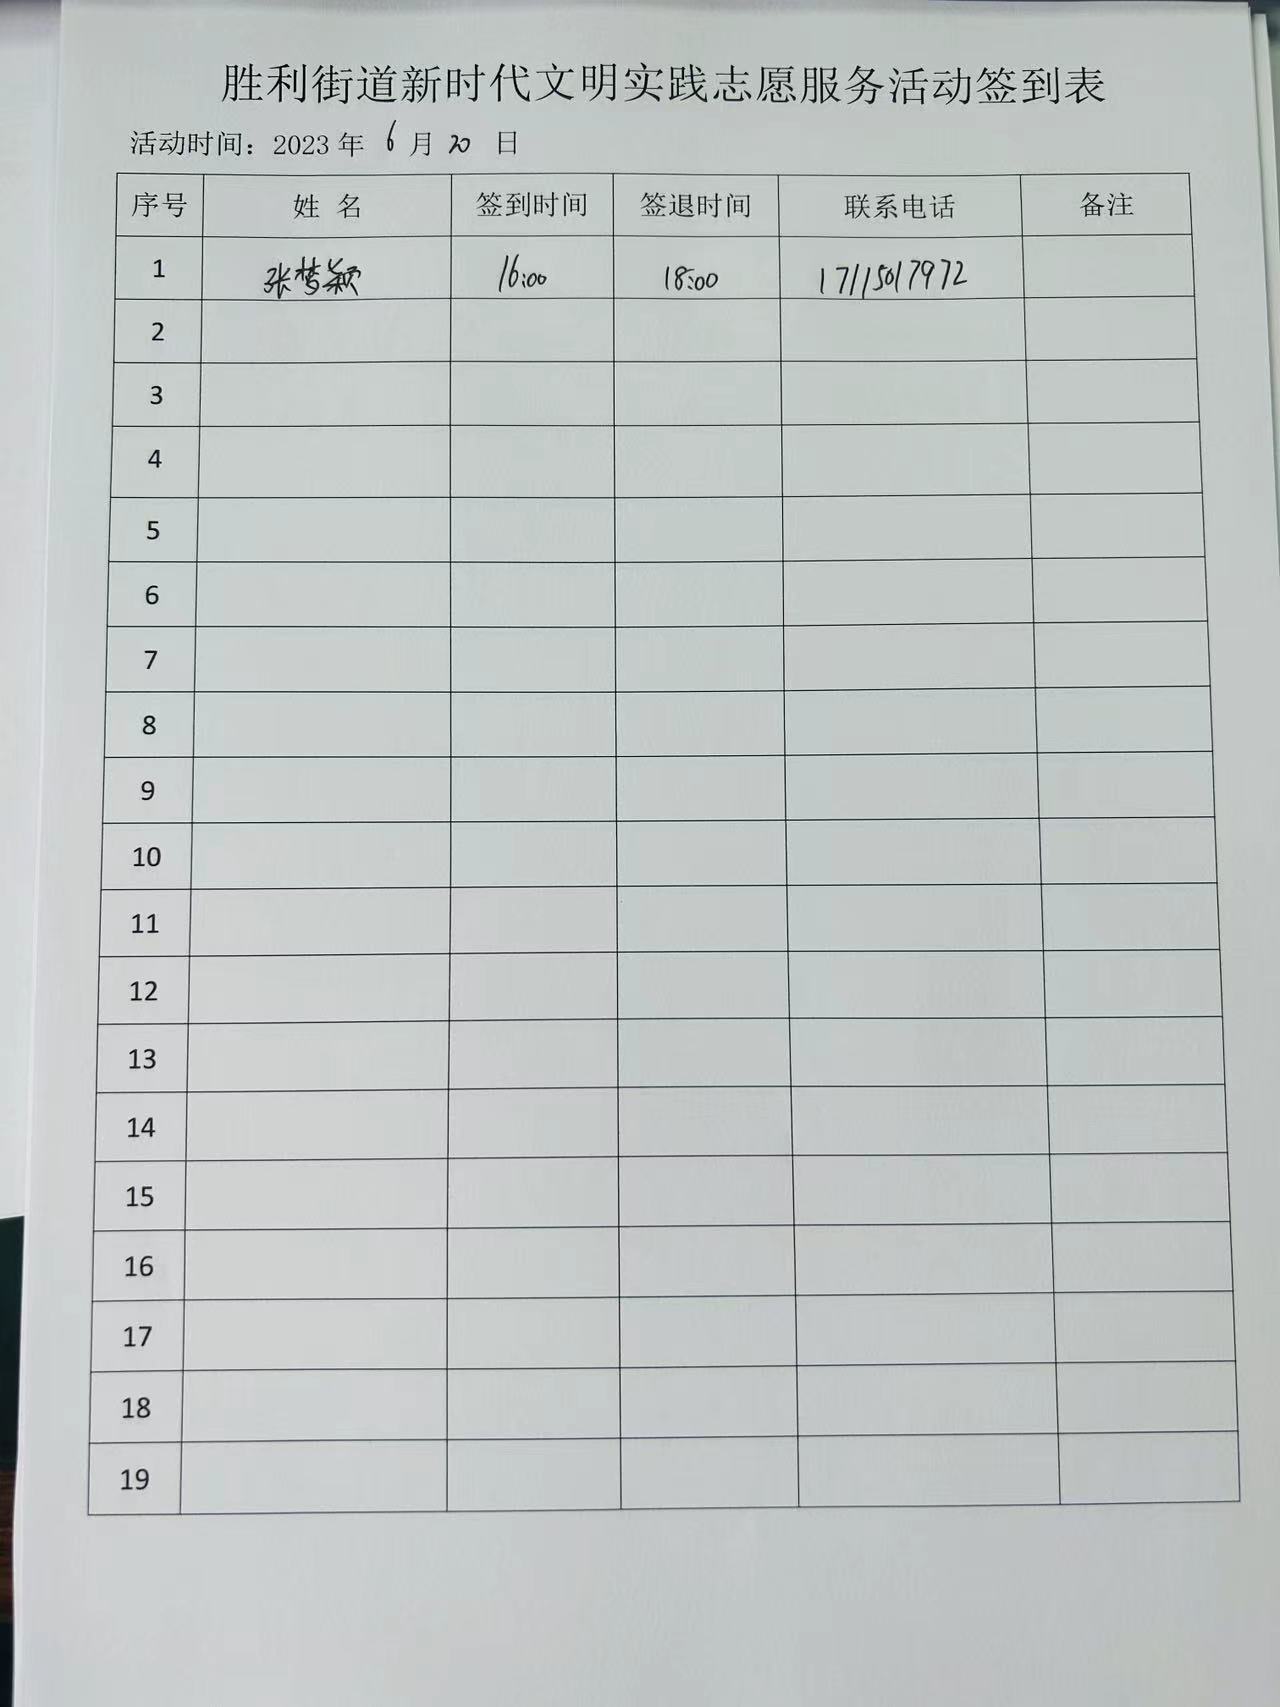 胜利街道新时代文明实践志愿服务活动签到表
活动时间：2023年 6月 20 日
序号 姓 名 签到时间 签退时间 联系电话 备注
1 张梦颖 16:00 18:00 17115017972
2
3
4
5
6
7
8
9
10
11
12
13
14
15
16
17
18
19